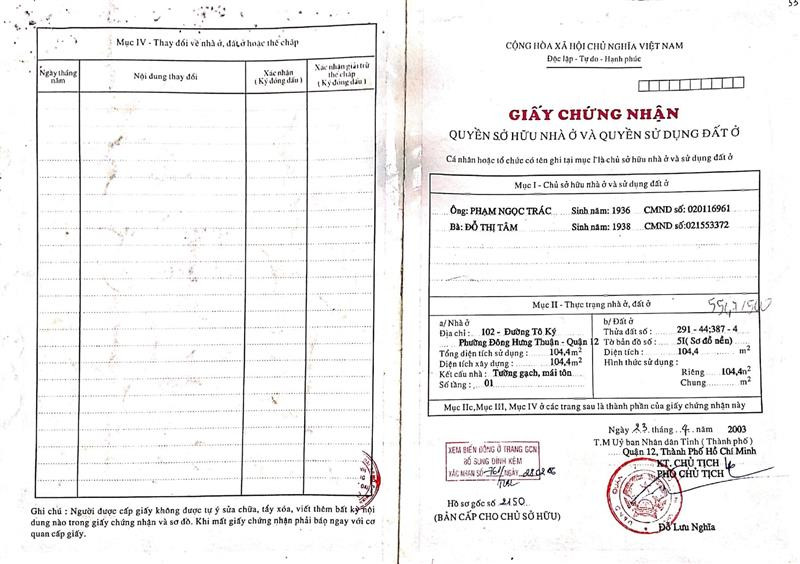 33
Mục IV - Thay đổi về nhà ở, đất ở hoặc thế chấp
Ngày tháng năm
Nội dung thay đổi
Xác nhận
( Ký đóng dấu)
Xác nhận giải trừ thế chấp
( Ký đóng dấu)
Ghi chú : Người được cấp giấy không được tự ý sửa chữa, tẩy xóa, viết thêm bất kỳ nội
dung nào trong giấy chứng nhận và sơ đồ. Khi mất giấy chứng nhận phải báo ngay với cơ
quan cấp giấy.
CỘNG HÒA XÃ HỘI CHỦ NGHĨA VIỆT NAM
Độc lập - Tự do - Hạnh phúc
GIẤY CHỨNG NHẬN
QUYỀN SỞ HỮU NHÀ Ở VÀ QUYỀN SỬ DỤNG ĐẤT Ở
Cá nhân hoặc tổ chức có tên ghi tại mục I là chủ sở hữu nhà ở và sử dụng đất ở
Mục I - Chủ sở hữu nhà ở và sử dụng đất ở
Ông: PHẠM NGỌC TRÁC Sinh năm: 1936 CMND số: 020116961
Bà: ĐỖ THỊ TÂM Sinh năm: 1938 CMND số:021553372
Mục II - Thực trạng nhà ở, đất ở
a/ Nhà ở
Địa chỉ : 102 - Đường Tô Ký
Phường Đông Hưng Thuận - Quận 12
Tổng diện tích sử dụng : 104,4m2
Diện tích xây dựng : 104,4m2
Kết cấu nhà : Tường gạch, mái tôn
Số tầng : 01
b/ Đất ở
Thửa đất số : 291 - 44;387 - 4
Tờ bản đồ số : 5I( Sơ đồ nền)
Diện tích : 104,4 m2
Hình thức sử dụng :
Riêng 104,4m2
Chung m2
Mục IIc,Mục III, Mục IV ở các trang sau là thành phần của giấy chứng nhận này
Ngày 23 tháng 4 năm 2003
T.M Uỷ ban Nhân dân Tỉnh ( Thành phố )
Quận 12, Thành Phố Hồ Chí Minh
KT. CHỦ TỊCH
PHÓ CHỦ TỊCH
XEM BIẾN ĐỘNG Ở TRANG GCN
BỔ SUNG ĐÍNH KÈM
XÁC NHẬN SỐ 761/ NGÀY 28.02.06
Hồ sơ gốc số 2150
(BẢN CẤP CHO CHỦ SỞ HỮU)
Đỗ Lưu Nghĩa